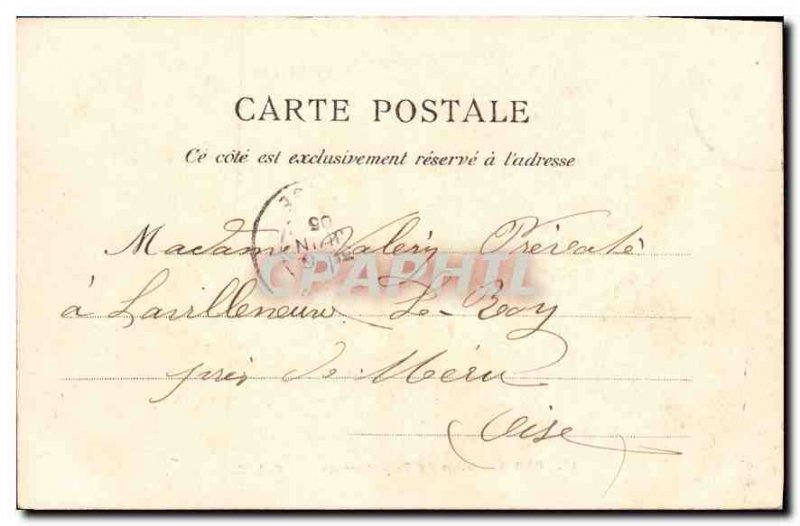 CARTE POSTALE
Ce côté est exclusivement réservé à l'adresse
05
JUIN
CPAPHIL
Madame Valéry Prévoté
à Lavilleneuve Le-Roy
près de Méru
Oise